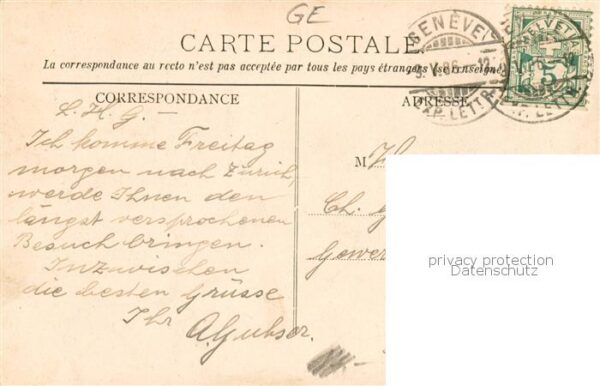 GE
CARTE POSTALE.
La correspondance au recto n'est pas acceptée par tous les pays étrangers (se renseigner
CORRESPONDANCE
ADRESSE
L. H. G. —
Ich komme Freitag
morgen nach Zürich,
werde Ihnen den
längst versprochenen
Besuch bringen.
Inzwischen
die besten Grüsse
Ihr A. Gubser.
M
Ch. G
Gewer
GENÈVE
EXP. LETTR
HELVETIA
5
privacy protection
Datenschutz